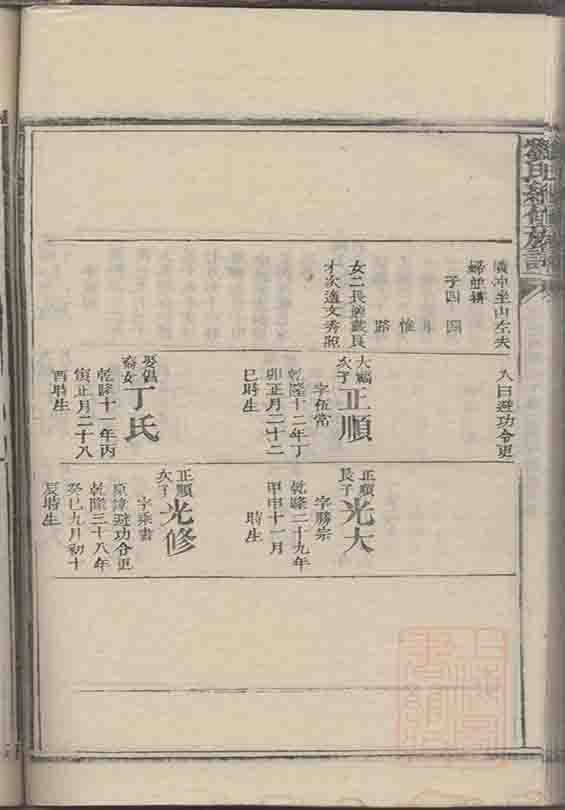 劉氏續修族譜
橫冲坐山左夫
婦並塟
子四
惟
路
女二長適戴良
才次適文秀
入曰避功令更
大
次子
正順
字伍常
乾隆十二年丁
卯正月二十二
巳時生
娶
女
丁氏
乾隆十一年丙
寅正月二十八
酉時生
正順
長子
光大
字勝宗
乾隆二十九年
甲申十一月
時生
正順
次子
光修
字乘書
原諱避功令更
乾隆三十八年
癸巳九月初十
時生
上海圖書館藏